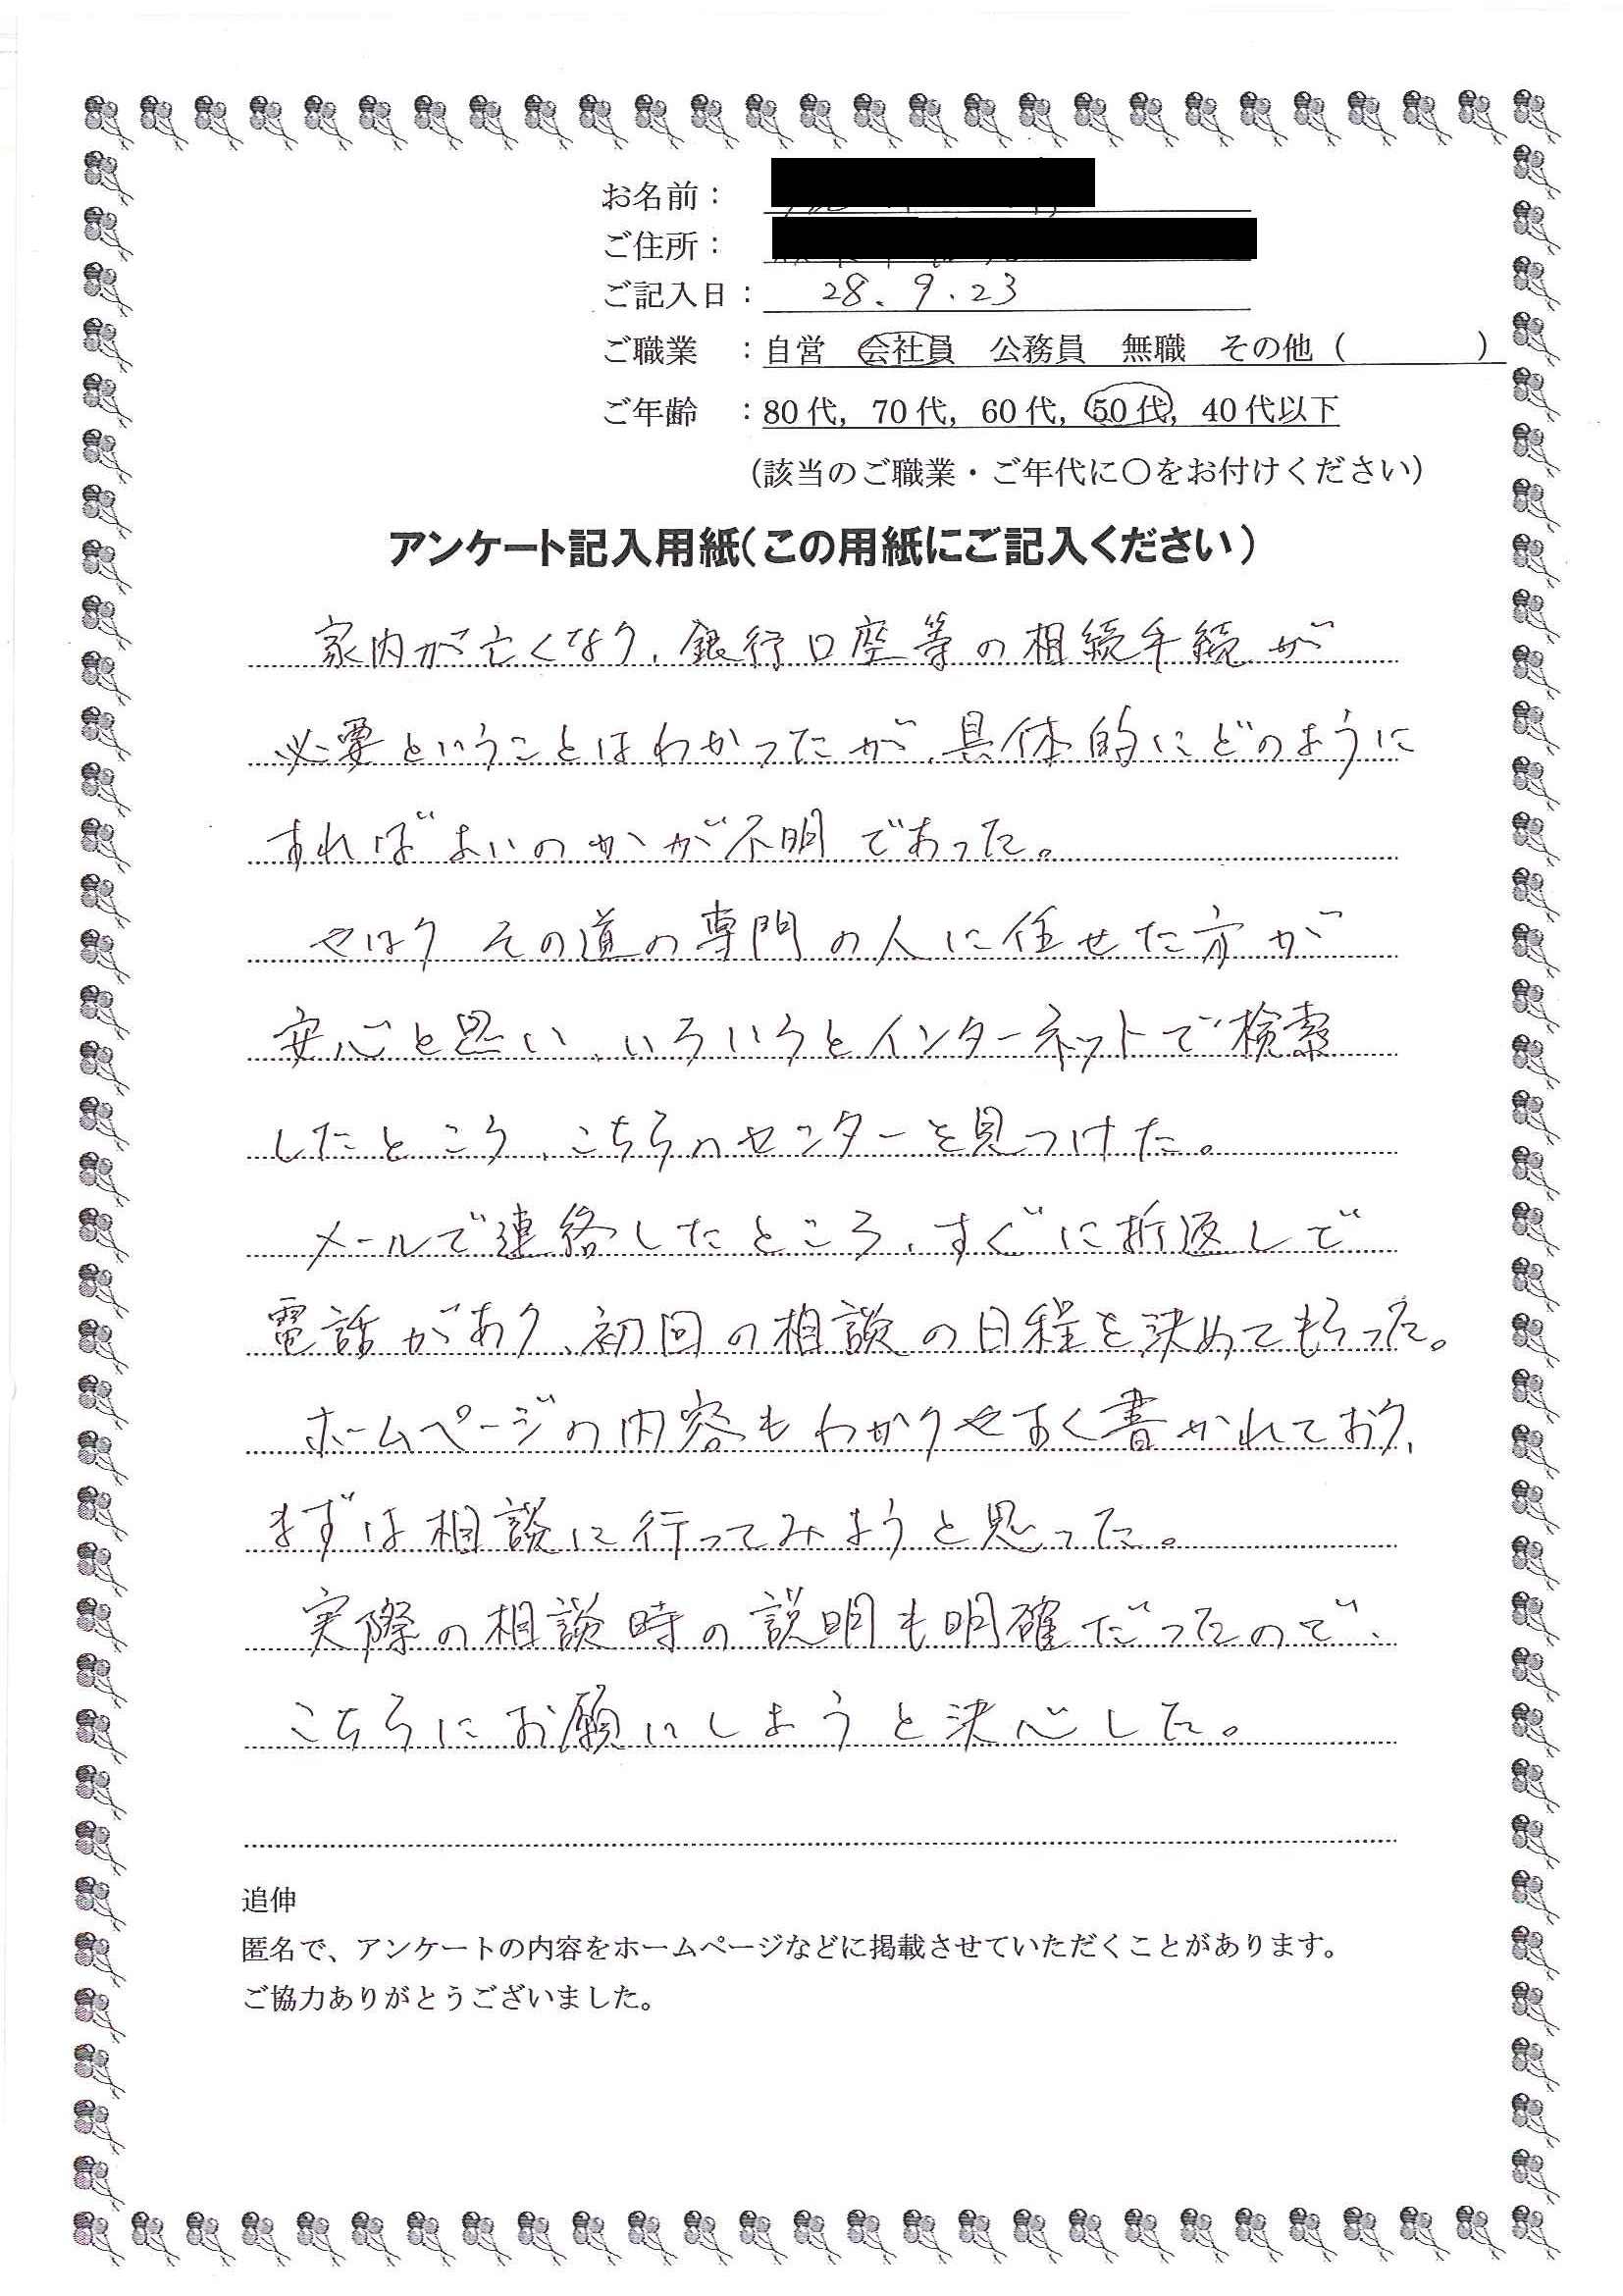 お名前：
ご住所：
ご記入日： 28.9.23
ご職業 ：自営 会社員 公務員 無職 その他（ ）
ご年齢 ：80代，70代，60代，50代，40代以下
（該当のご職業・ご年代に○をお付けください）
アンケート記入用紙（この用紙にご記入ください）
家内が亡くなり、銀行口座等の相続手続が
必要ということはわかったが、具体的にどのように
すればよいのかが不明であった。
やはり その道の専門の人に任せた方が
安心と思い、いろいろとインターネットで検索
したところ、こちらのセンターを見つけた。
メールで連絡したところ、すぐに折返しで
電話があり、初回の相談の日程を決めてもらった。
ホームページの内容もわかりやすく書かれており、
まずは相談に行ってみようと思った。
実際の相談時の説明も明確だったので、
こちらにお願いしようと決心した。
追伸
匿名で、アンケートの内容をホームページなどに掲載させていただくことがあります。
ご協力ありがとうございました。